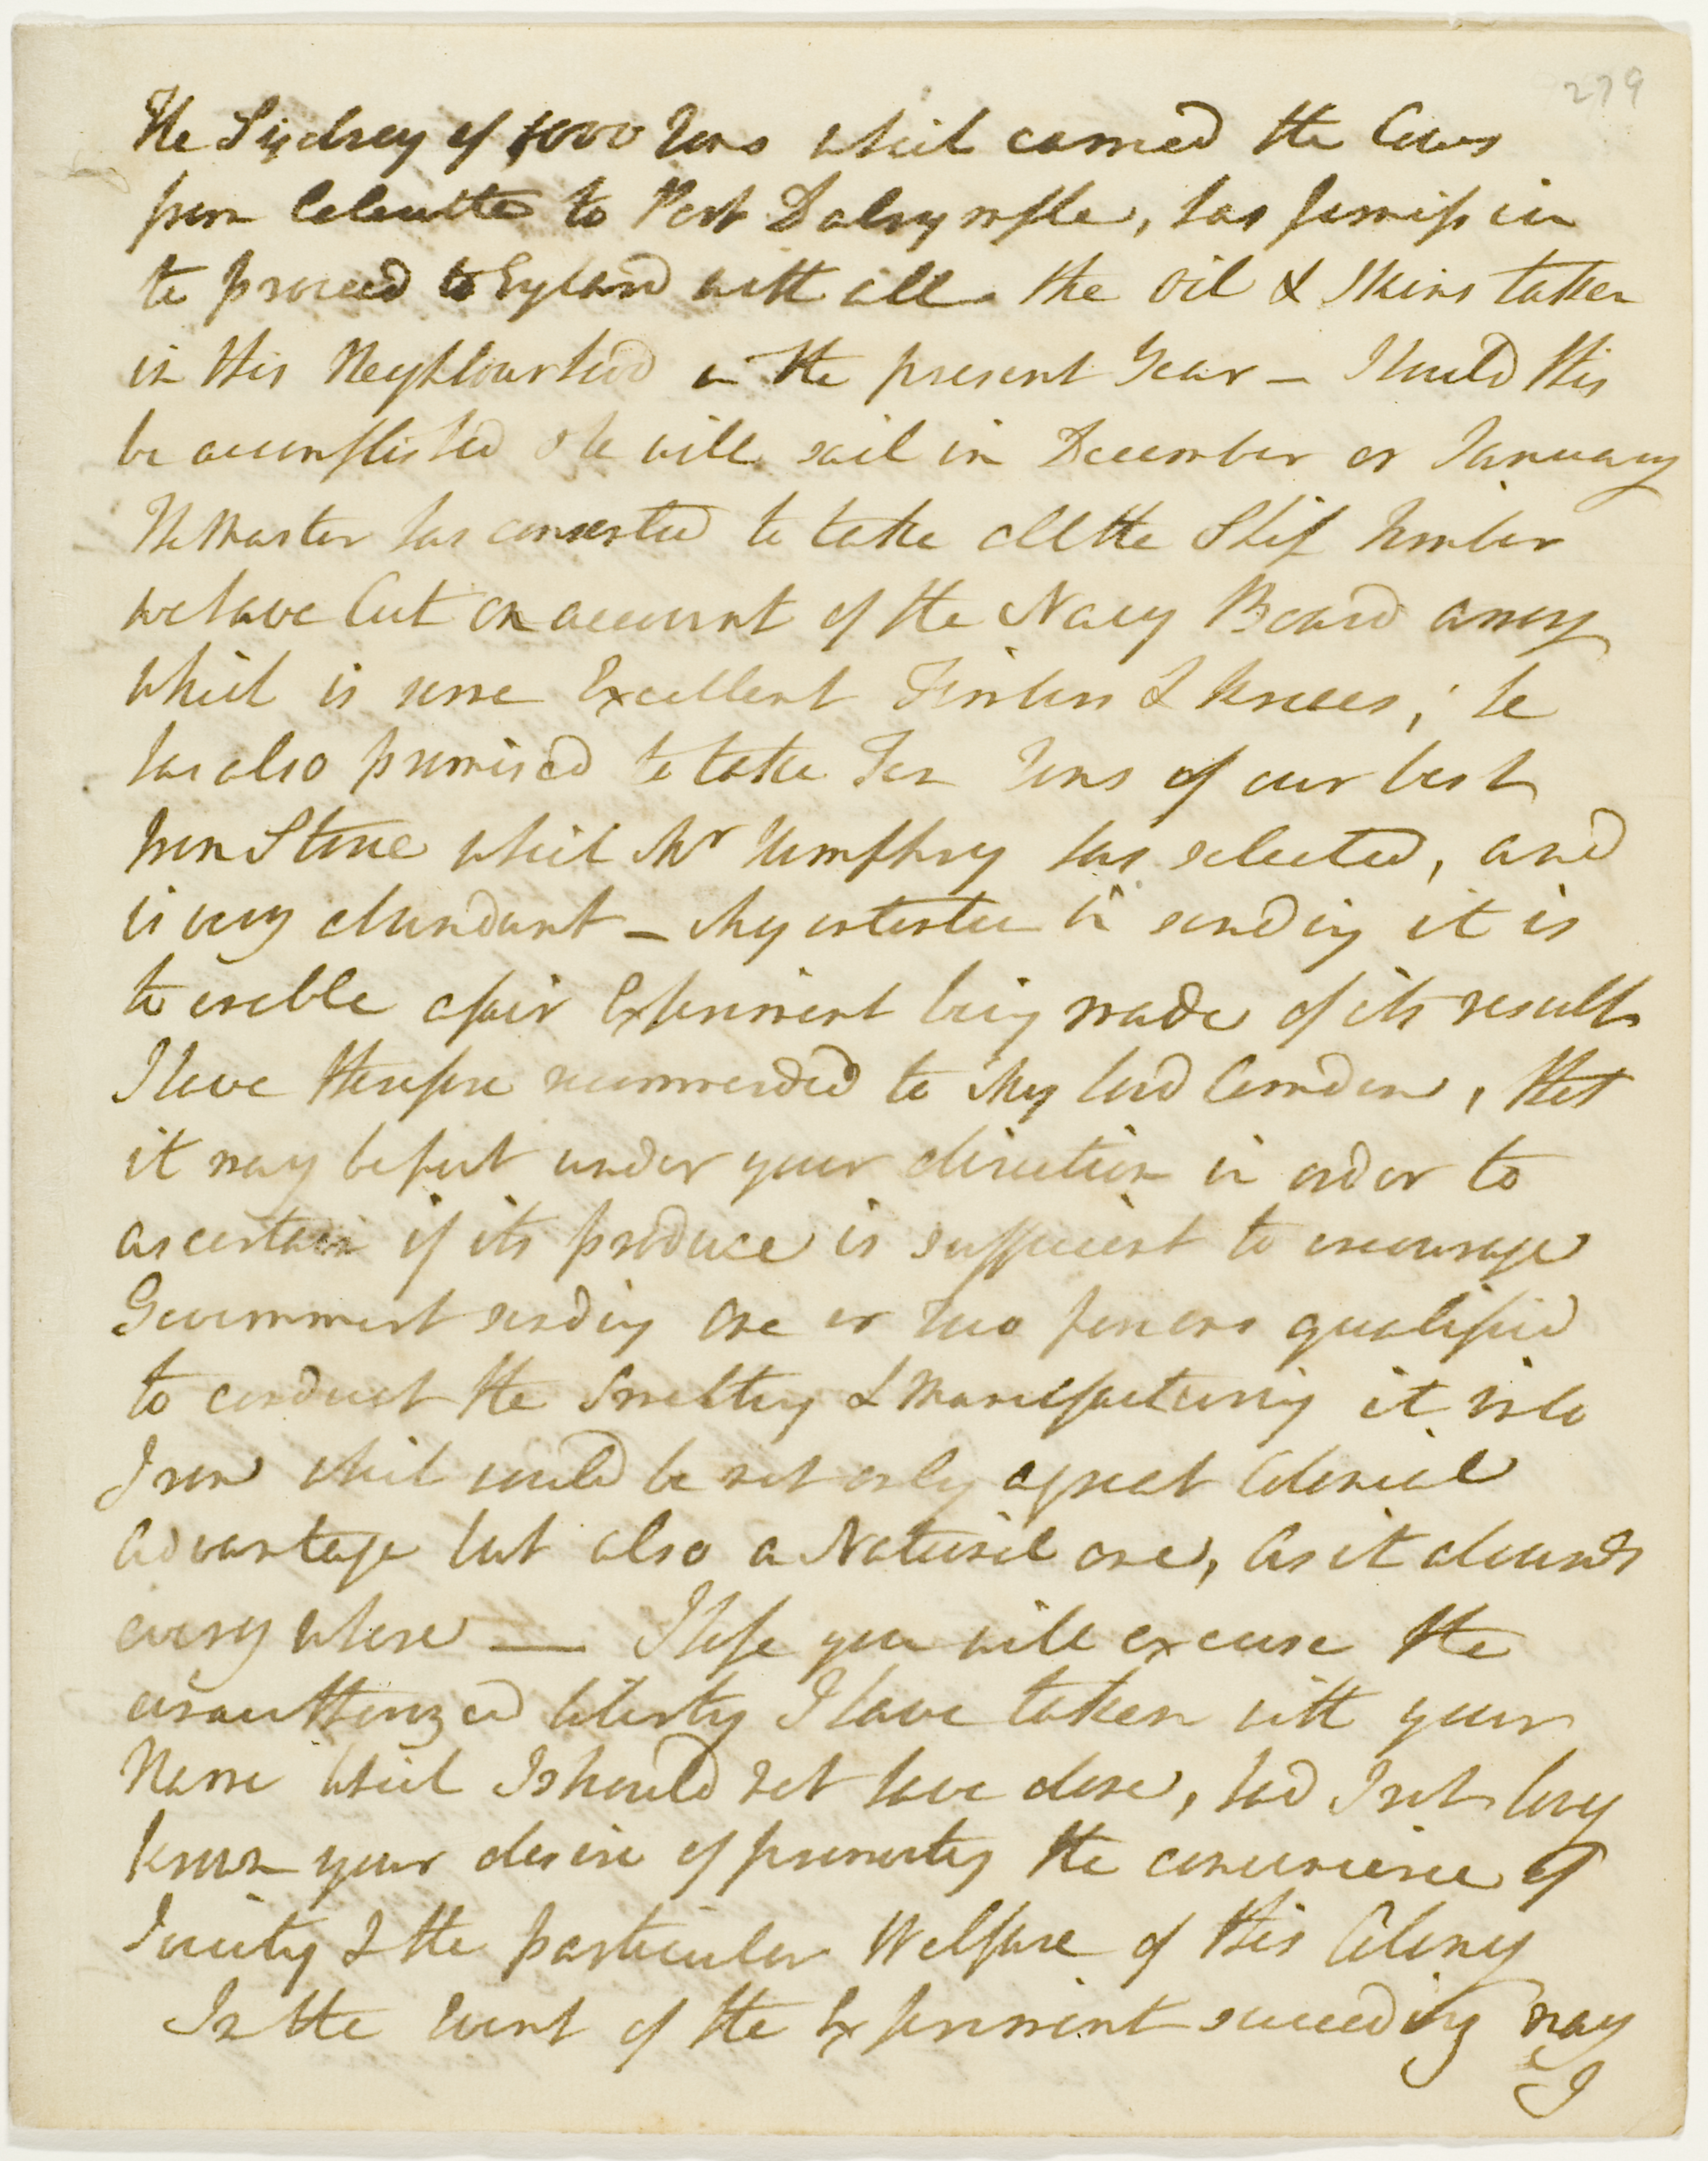 279
The Sydney of 1000 Tons which carried the Cows
from Calcutta to Port Dalrymple, has permission
to proceed to England with all the Oil & Skins taken
in this Neighbourhood in the present Year – Should this
be accomplished she will sail in December or January
The Master has consented to take all the Ship Timber
we have Cut on account of the Navy Board among
which is some Excellent Timbers & knees, he
has also promised to take Ten Tons of our best
Iron Stone which Mr Humphry has selected, and
is very abundant – My intention in sending it is
to enable a fair Experiment being made of its result
I have therefore recommended to My Lord Camden, that
it may be put under your direction in order to
ascertain if its produce is sufficient to encourage
Government sending one or two persons qualified
to conduct the Smelting & Manufacturing it into
Iron which would be not only a great Colonial
Advantage but also a National one, As it abounds
every where — I hope you will excuse the
unauthorized liberty I have taken with your
Name which I should not have done, had I not long
known your desire of promoting the convenience of
Society & the particular Welfare of this Colony
In the Event of the Experiment succeeding may
I